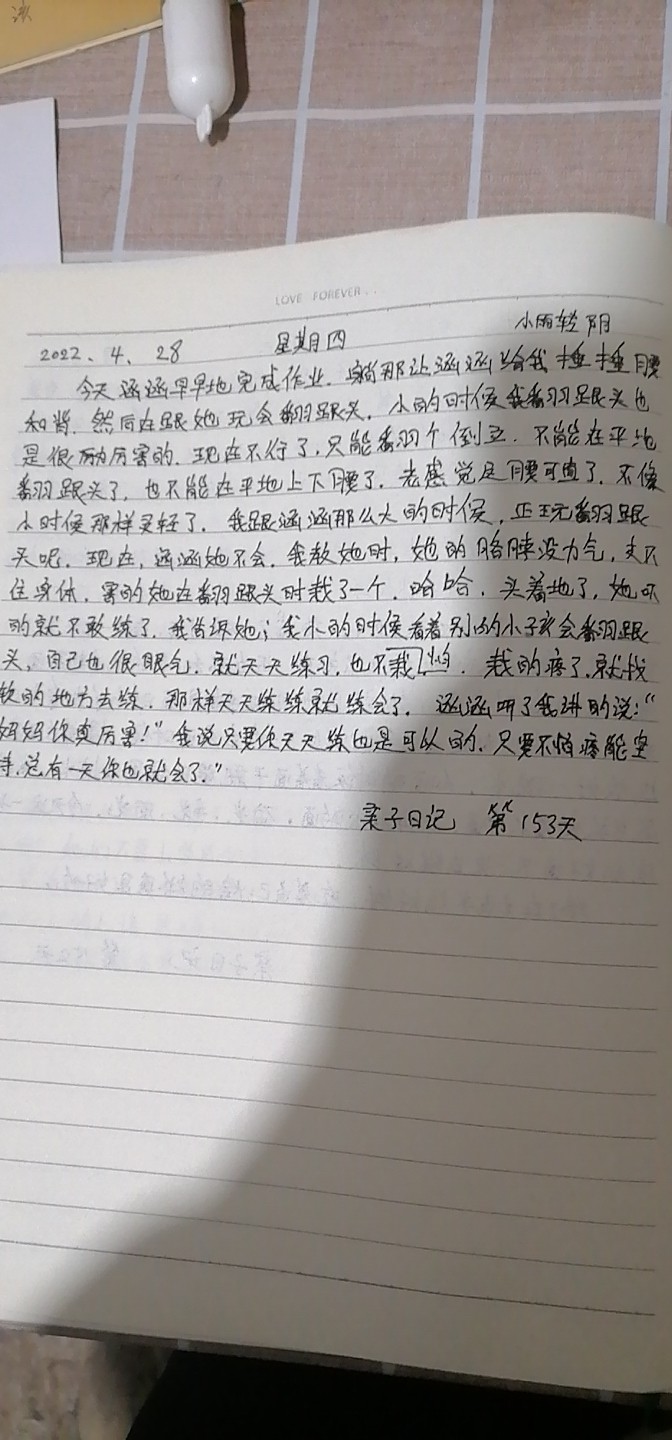 冰
LOVE FOREVER...
2022、4、28 星期四 小雨转阴
今天涵涵早早地完成作业。躺那让涵涵给我捶捶腰
和背。然后在跟她玩会翻跟头。小的时候我翻跟头也
是很厉害的。现在不行了,只能翻个倒立。不能在平地
翻跟头了,也不能在平地上下腰了。老感觉是腰可直了,不像
小时候那样灵轻了。我跟涵涵那么大的时候,正玩翻跟
头呢。现在,涵涵她不会。我教她时,她的胳膊没力气,支不
住身体,害的她在翻跟头时栽了一个。哈哈,头着地了,她吓
的就不敢练了。我告诉她;我小的时候看着别的小孩会翻跟
头,自己也很眼气。就天天练习,也不怕栽。栽的疼了,就找
软的地方去练。那样天天练练就练会了。涵涵听了我讲的说:“
妈妈你真厉害!”我说只要你天天练也是可以的。只要不怕疼能坚
持,总有一天你也就会了。”
亲子日记 第153天